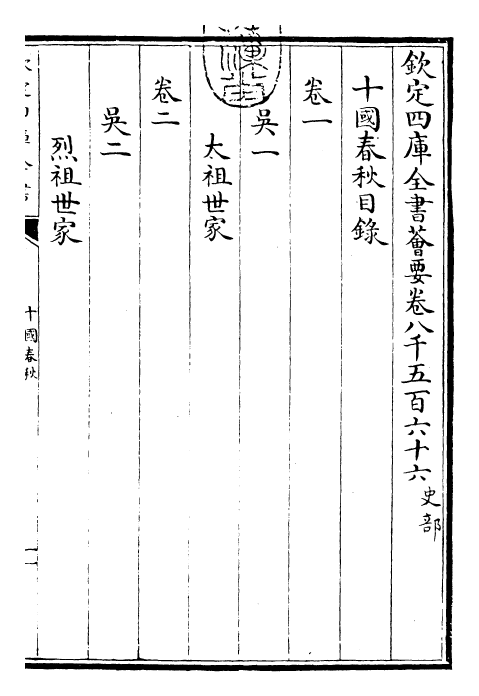 欽定四庫全書薈要卷八千五百六十六史部
十國春秋目錄
卷一
吳一
太祖世家
卷二
吳二
烈祖世家
十國春秋